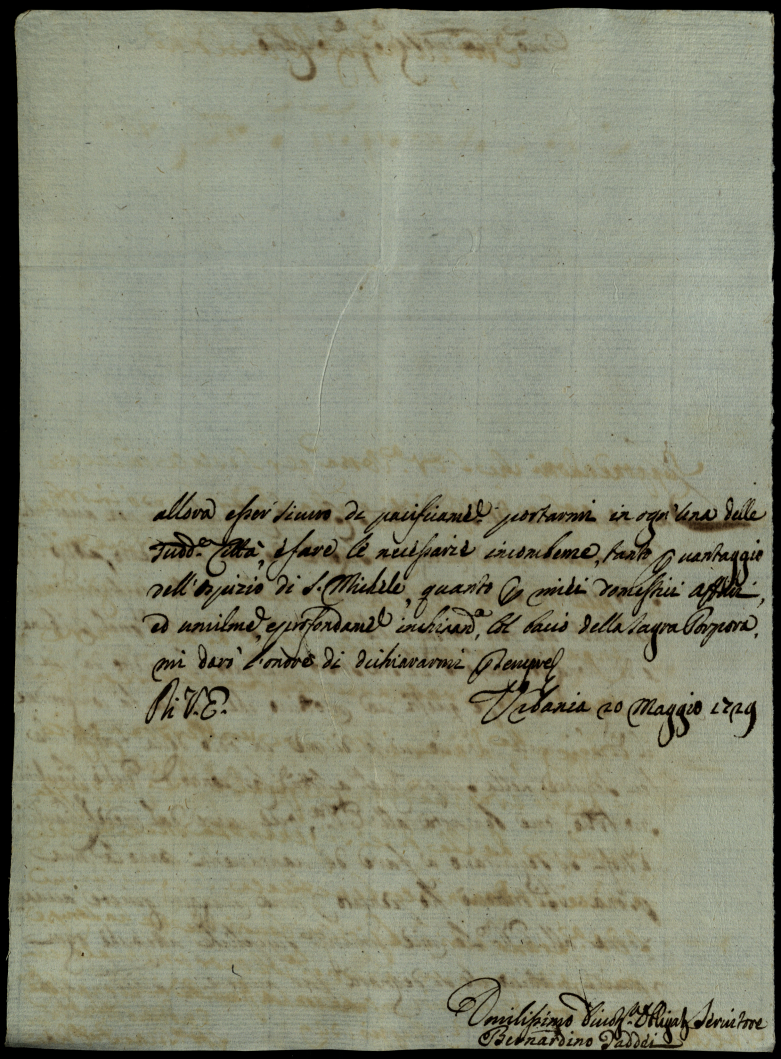 allora esser sicuro di pacificamel. portarmi in ogn'una delle
sudd.e Città, e fare le necessarie incombenze, tanto p vantaggio
dell'Ospizio di S. Michele, quanto p miei domestici affari,
ed umilme, e profondamel inchinand.a, col bacio della Sagra Porpora,
mi darò l'onore di dichiararmi p sempre
Di V. E.
Urbania 20 Maggio 1729
Umilissimo Obligat Servitore
Bernardino